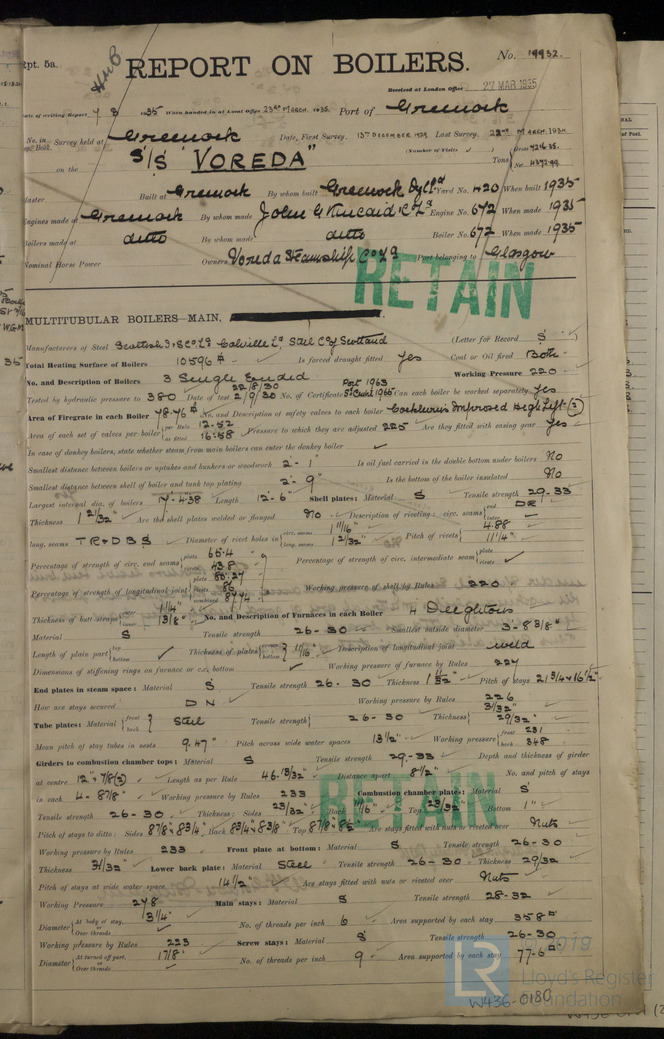 Rpt. 5a.
REPORT ON BOILERS.
No. 19932.
Received at London Office 27 MAR 1935
Date of writing Report 1935 When handed in at Local Office 23rd March. 1935. Port of Greenock
No. in Survey held at Greenock Date, First Survey. 13th December 1934 Last Survey. 22nd March. 1935
on the S/S "VOREDA" (Number of Visits ) Tons Gross 7216.35. Net 4372.99
Master Built at Greenock By whom built Greenock Dyd Co Ld Yard No. 420 When built 1935
Engines made at Greenock By whom made John G Kincaid & Co Ld Engine No. 672 When made 1935
Boilers made at ditto By whom made ditto Boiler No. 672 When made 1935
Nominal Horse Power Owners Voreda Steamship Co Ld Port belonging to Glasgow
RETAIN
MULTITUBULAR BOILERS MAIN,
Manufacturers of Steel Colvilles Ld, Steel Co of Scotland (Letter for Record S )
Total Heating Surface of Boilers 10596 Is forced draught fitted Yes Coal or Oil fired Both
No. and Description of Boilers 3 Single Ended Working Pressure 220
Tested by hydraulic pressure to 380 Date of test No. of Certificate Can each boiler be worked separately Yes
Area of Firegrate in each Boiler 78.76 No. and Description of safety valves to each boiler Cockburn's Improved High Lift (2)
Area of each set of valves per boiler per Rule 12.52 as fitted 16.58 Pressure to which they are adjusted 225 Are they fitted with easing gear Yes
In case of donkey boilers, state whether steam from main boilers can enter the donkey boiler
Smallest distance between boilers or uptakes and bunkers or woodwork 2'-1" Is oil fuel carried in the double bottom under boilers No
Smallest distance between shell of boiler and tank top plating 2'-9" Is the bottom of the boiler insulated No
Largest internal dia. of boilers Length 12'-6" Shell plates: Material S Tensile strength 29-33
Thickness 1 21/32" Are the shell plates welded or flanged No Description of riveting: circ. seams end DR inter
long. seams TR & DBS Diameter of rivet holes in circ. seams 1 11/16" long. seams 1 21/32" Pitch of rivets 4.88 11 1/4"
Percentage of strength of circ. end seams plate 65.4 rivets 43.8 Percentage of strength of circ. intermediate seam plate rivets
Percentage of strength of longitudinal joint plate rivets combined Working pressure of shell by Rules 220
Thickness of butt straps 1 1/4" 1 3/8" No. and Description of Furnaces in each Boiler 4 Deightons
Material S Tensile strength 26-30 Smallest outside diameter 3'-8 3/8"
Length of plain part top bottom Thickness of plates 11/16" Description of longitudinal joint weld
Dimensions of stiffening rings on furnace or c.c. bottom Working pressure of furnace by Rules 227
End plates in steam space: Material S Tensile strength 26-30 Thickness 1 Pitch of stays 21 3/4 x 16 1/2"
How are stays secured DN Working pressure by Rules 226
Tube plates: Material front back Steel Tensile strength 26-30 Thickness 29/32"
Mean pitch of stay tubes in nests 9.47" Pitch across wide water spaces 13 1/2" Working pressure front 231 back 348
Girders to combustion chamber tops: Material S Tensile strength 29-33 Depth and thickness of girder
at centre 12" x 7/8 (2) Length as per Rule 46.13/32" Distance apart 8 1/2" No. and pitch of stays
in each 4 - 8 7/8" Working pressure by Rules 233 Combustion chamber plates: Material S
Tensile strength 26-30 Thickness: Sides 23/32" Back 11/16" Top 23/32" Bottom 1"
RETAIN
Pitch of stays to ditto: Sides 8 7/8 x 8 3/4 Back 8 3/4 x 8 3/8" Top 8 7/8 x 8 1/2 Are stays fitted with nuts or riveted over Nuts
Working pressure by Rules 233 Front plate at bottom: Material S Tensile strength 26-30
Thickness 31/32" Lower back plate: Material Steel Tensile strength 26-30 Thickness 29/32
Pitch of stays at wide water space 14 1/2" Are stays fitted with nuts or riveted over Nuts
Working Pressure 278 Main stays: Material S Tensile strength 28-32
Diameter At body of stay, or Over threads 3 1/4" No. of threads per inch 6 Area supported by each stay 358
Working pressure by Rules 223 Screw stays: Material S Tensile strength 26-30
Diameter At turned off part, or Over threads 1 7/8" No. of threads per inch 9 Area supported by each stay 77.6
© 2019
LR
Lloyd's Register
Foundation
W436-0180